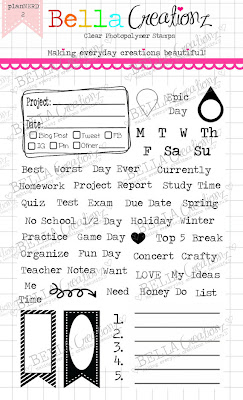 planNERD
2
Bella Creationz
Clear Photopolymer Stamps
Making everyday creations beautiful!
Project:
Date:
Blog Post Tweet FB
IG Pin Other
Epic
Day
M T W Th
F Sa Su
Best Worst Day Ever Currently
Homework Project Report Study Time
Quiz Test Exam Due Date Spring
No School 1/2 Day Holiday Winter
Practice Game Day Top 5 Break
Organize Fun Day Concert Crafty
Teacher Notes Want LOVE My Ideas
Me Time Need Honey Do List
1.
2.
3.
4.
5.